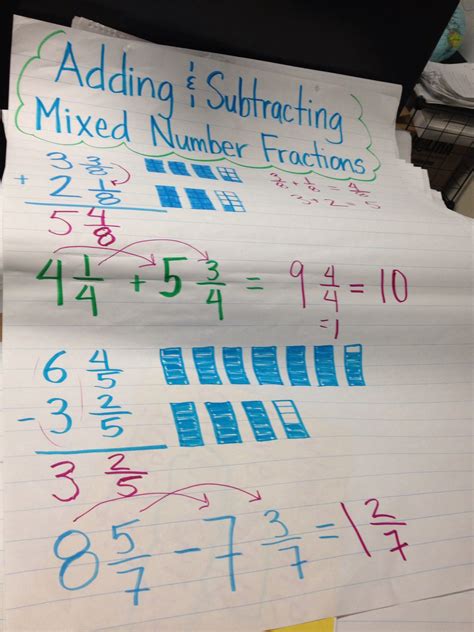 Adding & Subtracting
Mixed Number Fractions
3 3/8
+ 2 1/8
5 4/8
3/8 + 1/8 = 4/8
3+2=5
4 1/4 + 5 3/4 = 9 4/4 = 10
=1
6 4/5
- 3 2/5
3 2/5
8 5/7 - 7 3/7 = 1 2/7